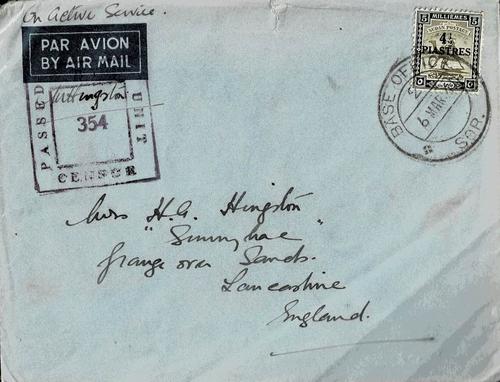 On Active Service.
PAR AVION
BY AIR MAIL
PASSED
WHingston
UNIT
354
CENSOR
5 MILLIEMES 5
SUDAN POSTAGE
4½
PIASTRES
BASE
6 MAR
Mrs H.G. Hingston
"Sunnybrae"
Grange over Sands.
Lancashire
England.